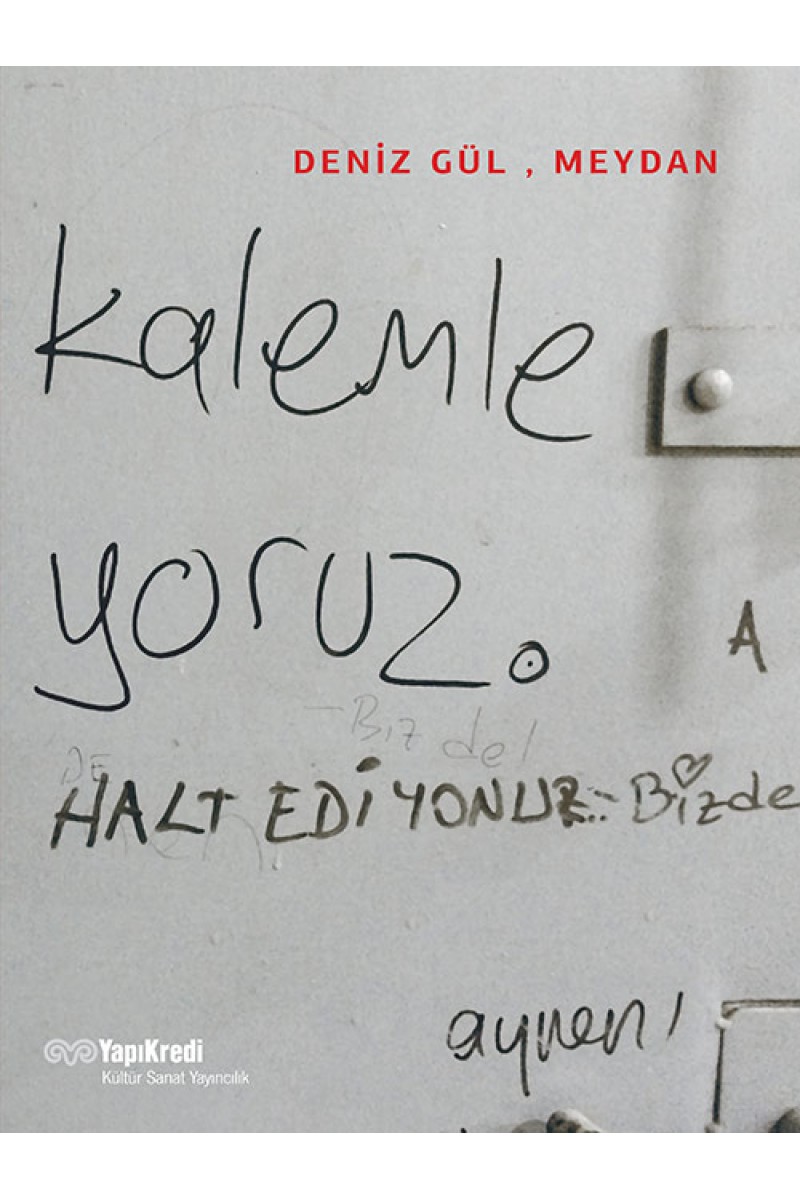 DENİZ GÜL , MEYDAN
kalemle
yoruz.
A
-Bız de!
DE
HALT EDİYONUZ.- Bizde
aynen!
YapıKredi
Kültür Sanat Yayıncılık